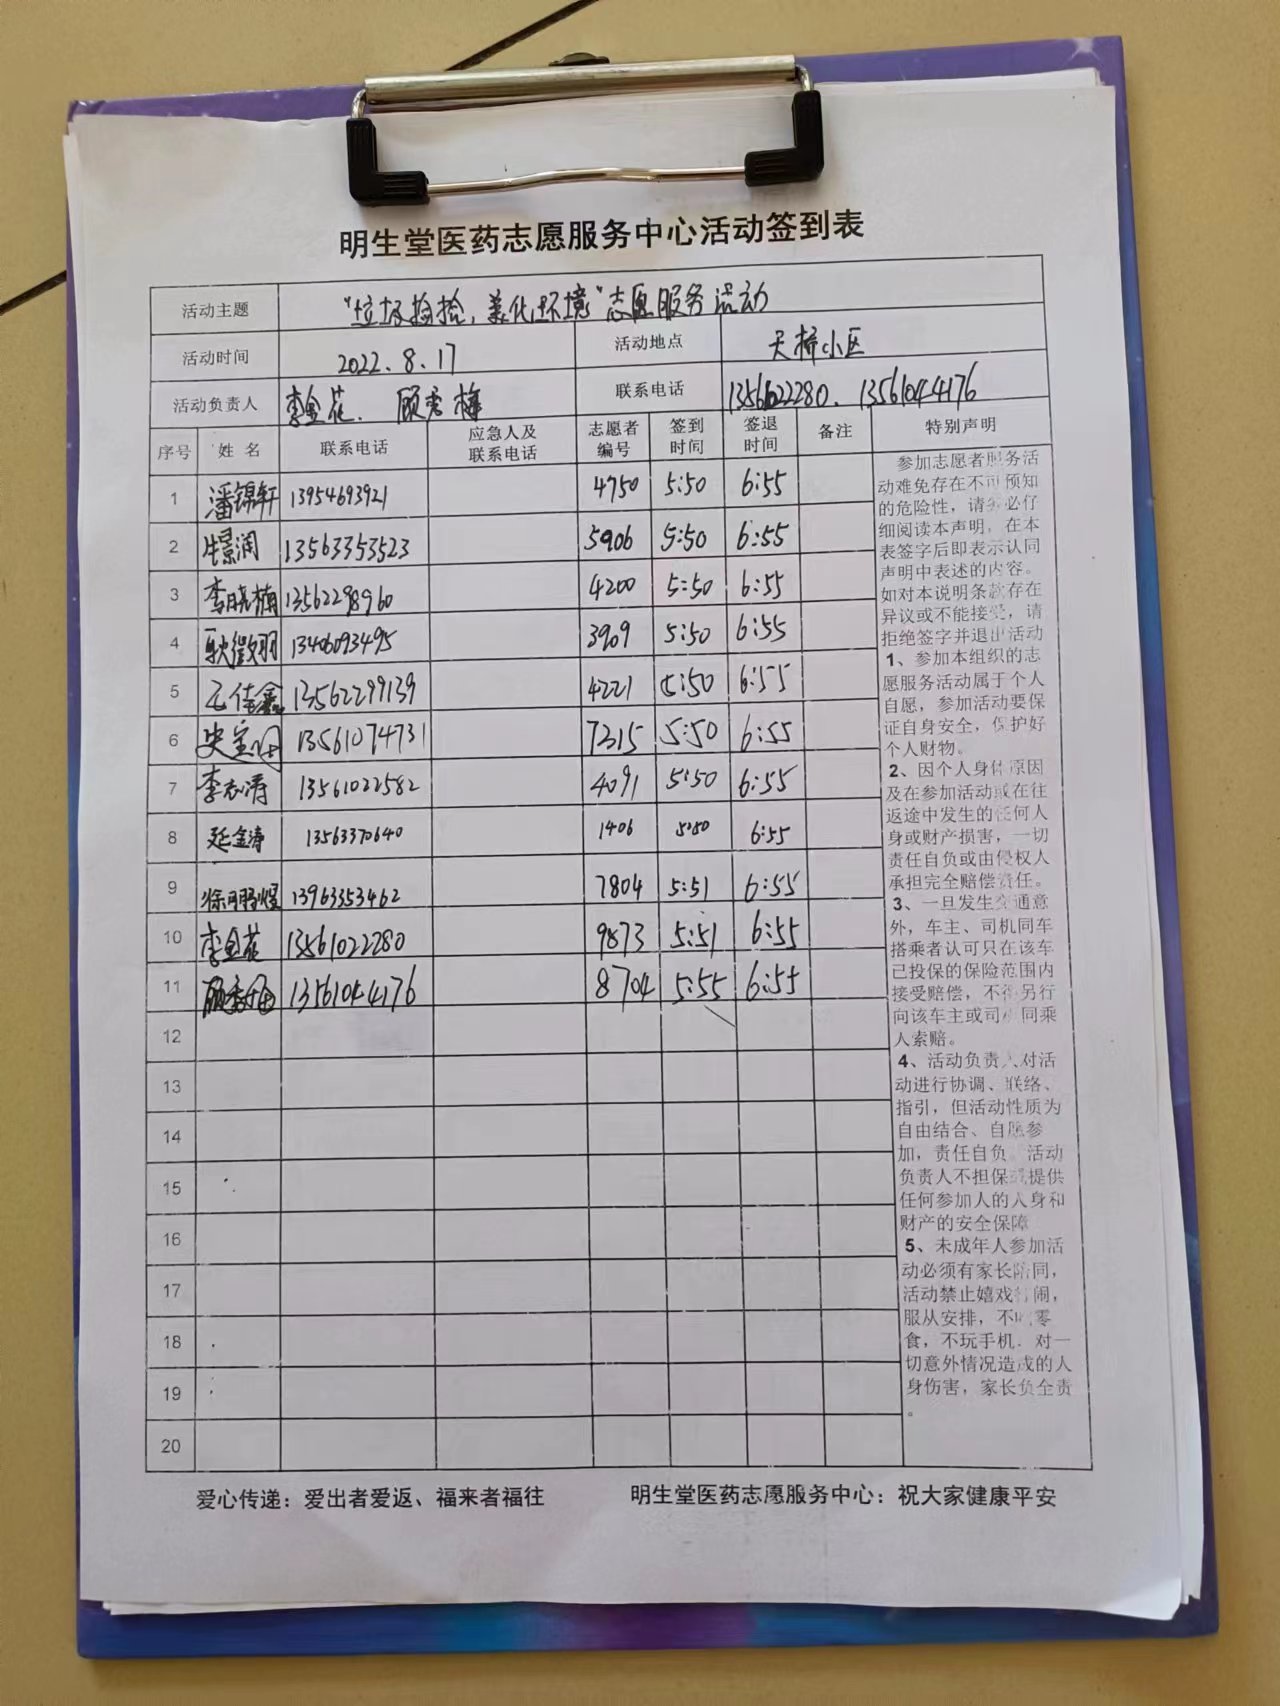 明生堂医药志愿服务中心活动签到表
活动主题 "垃圾捡拾,美化环境"志愿服务活动
活动时间 2022.8.17 活动地点 天桥小区
活动负责人 李金花、顾秀梅 联系电话 13561022280、13561044176
序号 姓名 联系电话 应急人及联系电话 志愿者编号 签到时间 签退时间 备注 特别声明
1 潘锦轩 13954693921 4750 5:50 6:55
2 牛景润 13563353523 5906 5:50 6:55
3 李晓楠 13562298960 4200 5:50 6:55
4 耿微羽 13406093495 3909 5:50 6:55
5 佳鑫 13562299139 4221 5:50 6:55
6 史宝 13561074731 7315 5:50 6:55
7 李志涛 13561022582 4091 5:50 6:55
8 延金涛 13563370640 1406 5:50 6:55
9 徐 13963353462 7804 5:51 6:55
10 李金花 13561022280 9873 5:51 6:55
11 顾秀梅 13561044176 8704 5:55 6:55
12
13
14
15
16
17
18
19
20
参加志愿者服务活
动难免存在不可预知
的危险性，请务必仔
细阅读本声明，在本
表签字后即表示认同
声明中表述的内容。
如对本说明条款存在
异议或不能接受，请
拒绝签字并退出活动
1、参加本组织的志
愿服务活动属于个人
自愿，参加活动要保
证自身安全，保护好
个人财物。
2、因个人身体原因
及在参加活动或在往
返途中发生的任何人
身或财产损害，一切
责任自负或由侵权人
承担完全赔偿责任。
3、一旦发生交通意
外，车主、司机同车
搭乘者认可只在该车
已投保的保险范围内
接受赔偿，不得另行
向该车主或司机同乘
人索赔。
4、活动负责人对活
动进行协调、联络、
指引，但活动性质为
自由结合、自愿参
加，责任自负。活动
负责人不担保或提供
任何参加人的人身和
财产的安全保障
5、未成年人参加活
动必须有家长陪同，
活动禁止嬉戏打闹，
服从安排，不吃零
食，不玩手机．对一
切意外情况造成的人
身伤害，家长负全责
。
爱心传递：爱出者爱返、福来者福往 明生堂医药志愿服务中心：祝大家健康平安